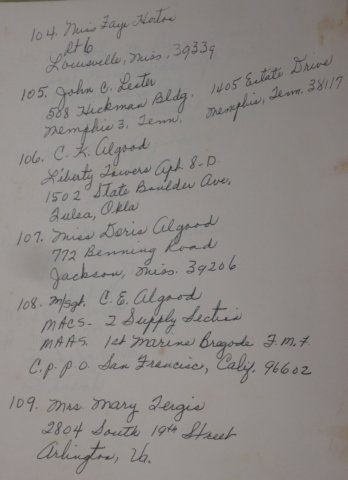 104. Miss Faye Horton
Rt 6
Louisville, Miss. 39339
105. John C. Lester
508 Hickman Bldg. 1405 Estate Drive
Memphis 3, Tenn. Memphis, Tenn. 38117
106. C. K. Algood
Liberty Towers Apt. 8-D.
1502 State Boulder Ave.
Tulsa, Okla
107. Miss Doris Algood
772 Benning Road
Jackson, Miss. 39206
108. M/Sgt. C. E. Algood
MACS-2 Supply Section
MAAS. 1st Marine Bragade F.M.F.
C.p.p.o. San Francisc, Calif. 96602
109. Mrs. Mary Tergis
2804 South 19th Street
Arlington, Va.